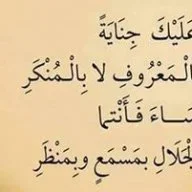 عَلَيْكَ جِنَايَةً
الْمَعْرُوفِ لَا بِالْمُنْكَرِ
سَاءَ فَأَنْتُمَا
الْحَلَالِ بِمَسْمَعٍ وَبِمَنْظَرِ